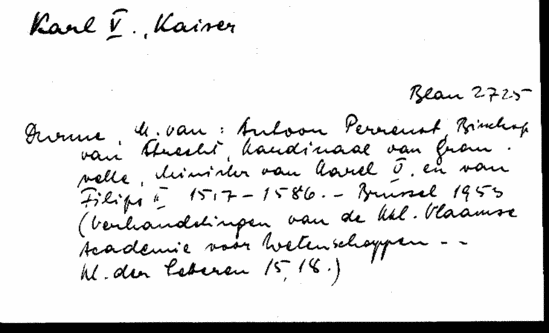 Karl V., Kaiser
Blau 2725
Durme, M. van: Antoon Perrenot, Bisschop
van Utrecht, Kardinaal van Gran-
velle, Minister van Karel V. en van
Filips II 1517-1586. - Brussel 1953
(Verhandelingen van de Kkl. Vlaamse
Academie voor Wetenschappen --
Kl. der Letteren 15, 18.)